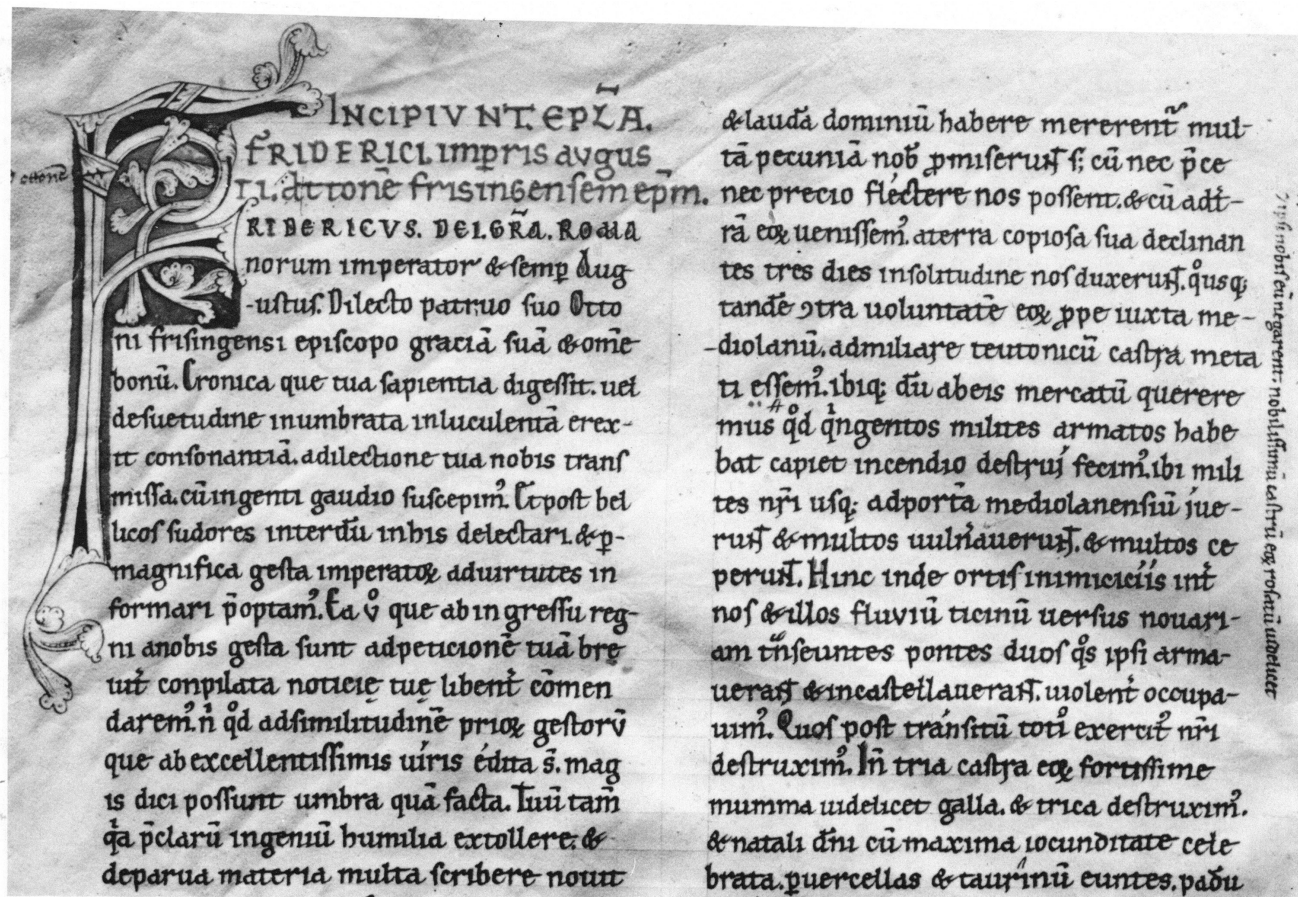 INCIPIVNT. EPL̄A.
FRIDERICI imp̄ris avgus
TI. attonē frisingensem ep̄m.
ottonē
FRIDERICVS. DEI. GR̄A. ROMA
norum imperator & semp̱ Aug
-ustus. Dilecto patruo suo Otto
ni frisingensi episcopo graciā suā & om̄e
bonū. Cronica que tua sapientia digessit. uel
desuetudine inumbrata inluculentā erex-
it consonantiā. adilectione tua nobis trans
missa. cū ingenti gaudio suscepim᷒. Et post bel
licos sudores interdū inhis delectari. & p̱-
magnifica gesta imperatoꝝ aduirtutes in
formari p̄optam᷒. Ea ů que abingressu reg-
ni anobis gesta sunt adpeticionē tuā bre
uit̄ conpilata noticię tuę libent̄ cōmen
darem᷒. n̄ qd̊ adsimilitudinē prioꝝ gestoꝝ
que abexcellentissimis uiris édita s̄. mag
is dici possunt umbra quā facta. Tuū tam̄
qa̍ p̄clarū ingeniū humilia extollere. &
deparua materia multa scribere nouit
& lauda dominiū habere mererent᷑ mul-
tā pecuniā nob̄ ꝓmiserunt s; cū nec p̄ce
nec precio fléctere nos possent. & cū adt̄-
rā eoꝝ uenissem᷒. aterra copiosa sua declinan
tes tres dies insolitudine nos duxerunt. qͦusqꝫ
tandē ꝯtra uoluntatē eoꝝ ꝓpe iuxta me-
-diolanū. admiliare teutonicū castra meta
ti essem᷒. ibiqꝫ dū abeis mercatū querere
mus qd̊ qͥngentos milites armatos habe
bat capi et incendio destrui fecim᷒. ibi mili
tes nr̄i usqꝫ adportā mediolanensiū iue-
runt & multos uulnauerunt. & multos ce
perunt. Hinc inde ortis inimiciciis int̄
nos & illos fluuiū ticinū uersus nouari-
am tn̄seuntes pontes duos qͦs ipsi arma-
uerant & incastellauerant. uiolent̄ occupa-
uim᷒. Quos post transitū toti᷒ exercit᷒ nr̄i
destruxim᷒. In̄ tria castra eoꝝ fortissime
mumma uidelicet galla. & trica destruxim᷒.
& natali dn̄i cū maxima iocunditate cele
brata. ꝑuercellas & taurinū euntes. padū
⁊ ipsi nobis eū negarent. nobilissimū castrū eoꝝ rosatū uidelicet